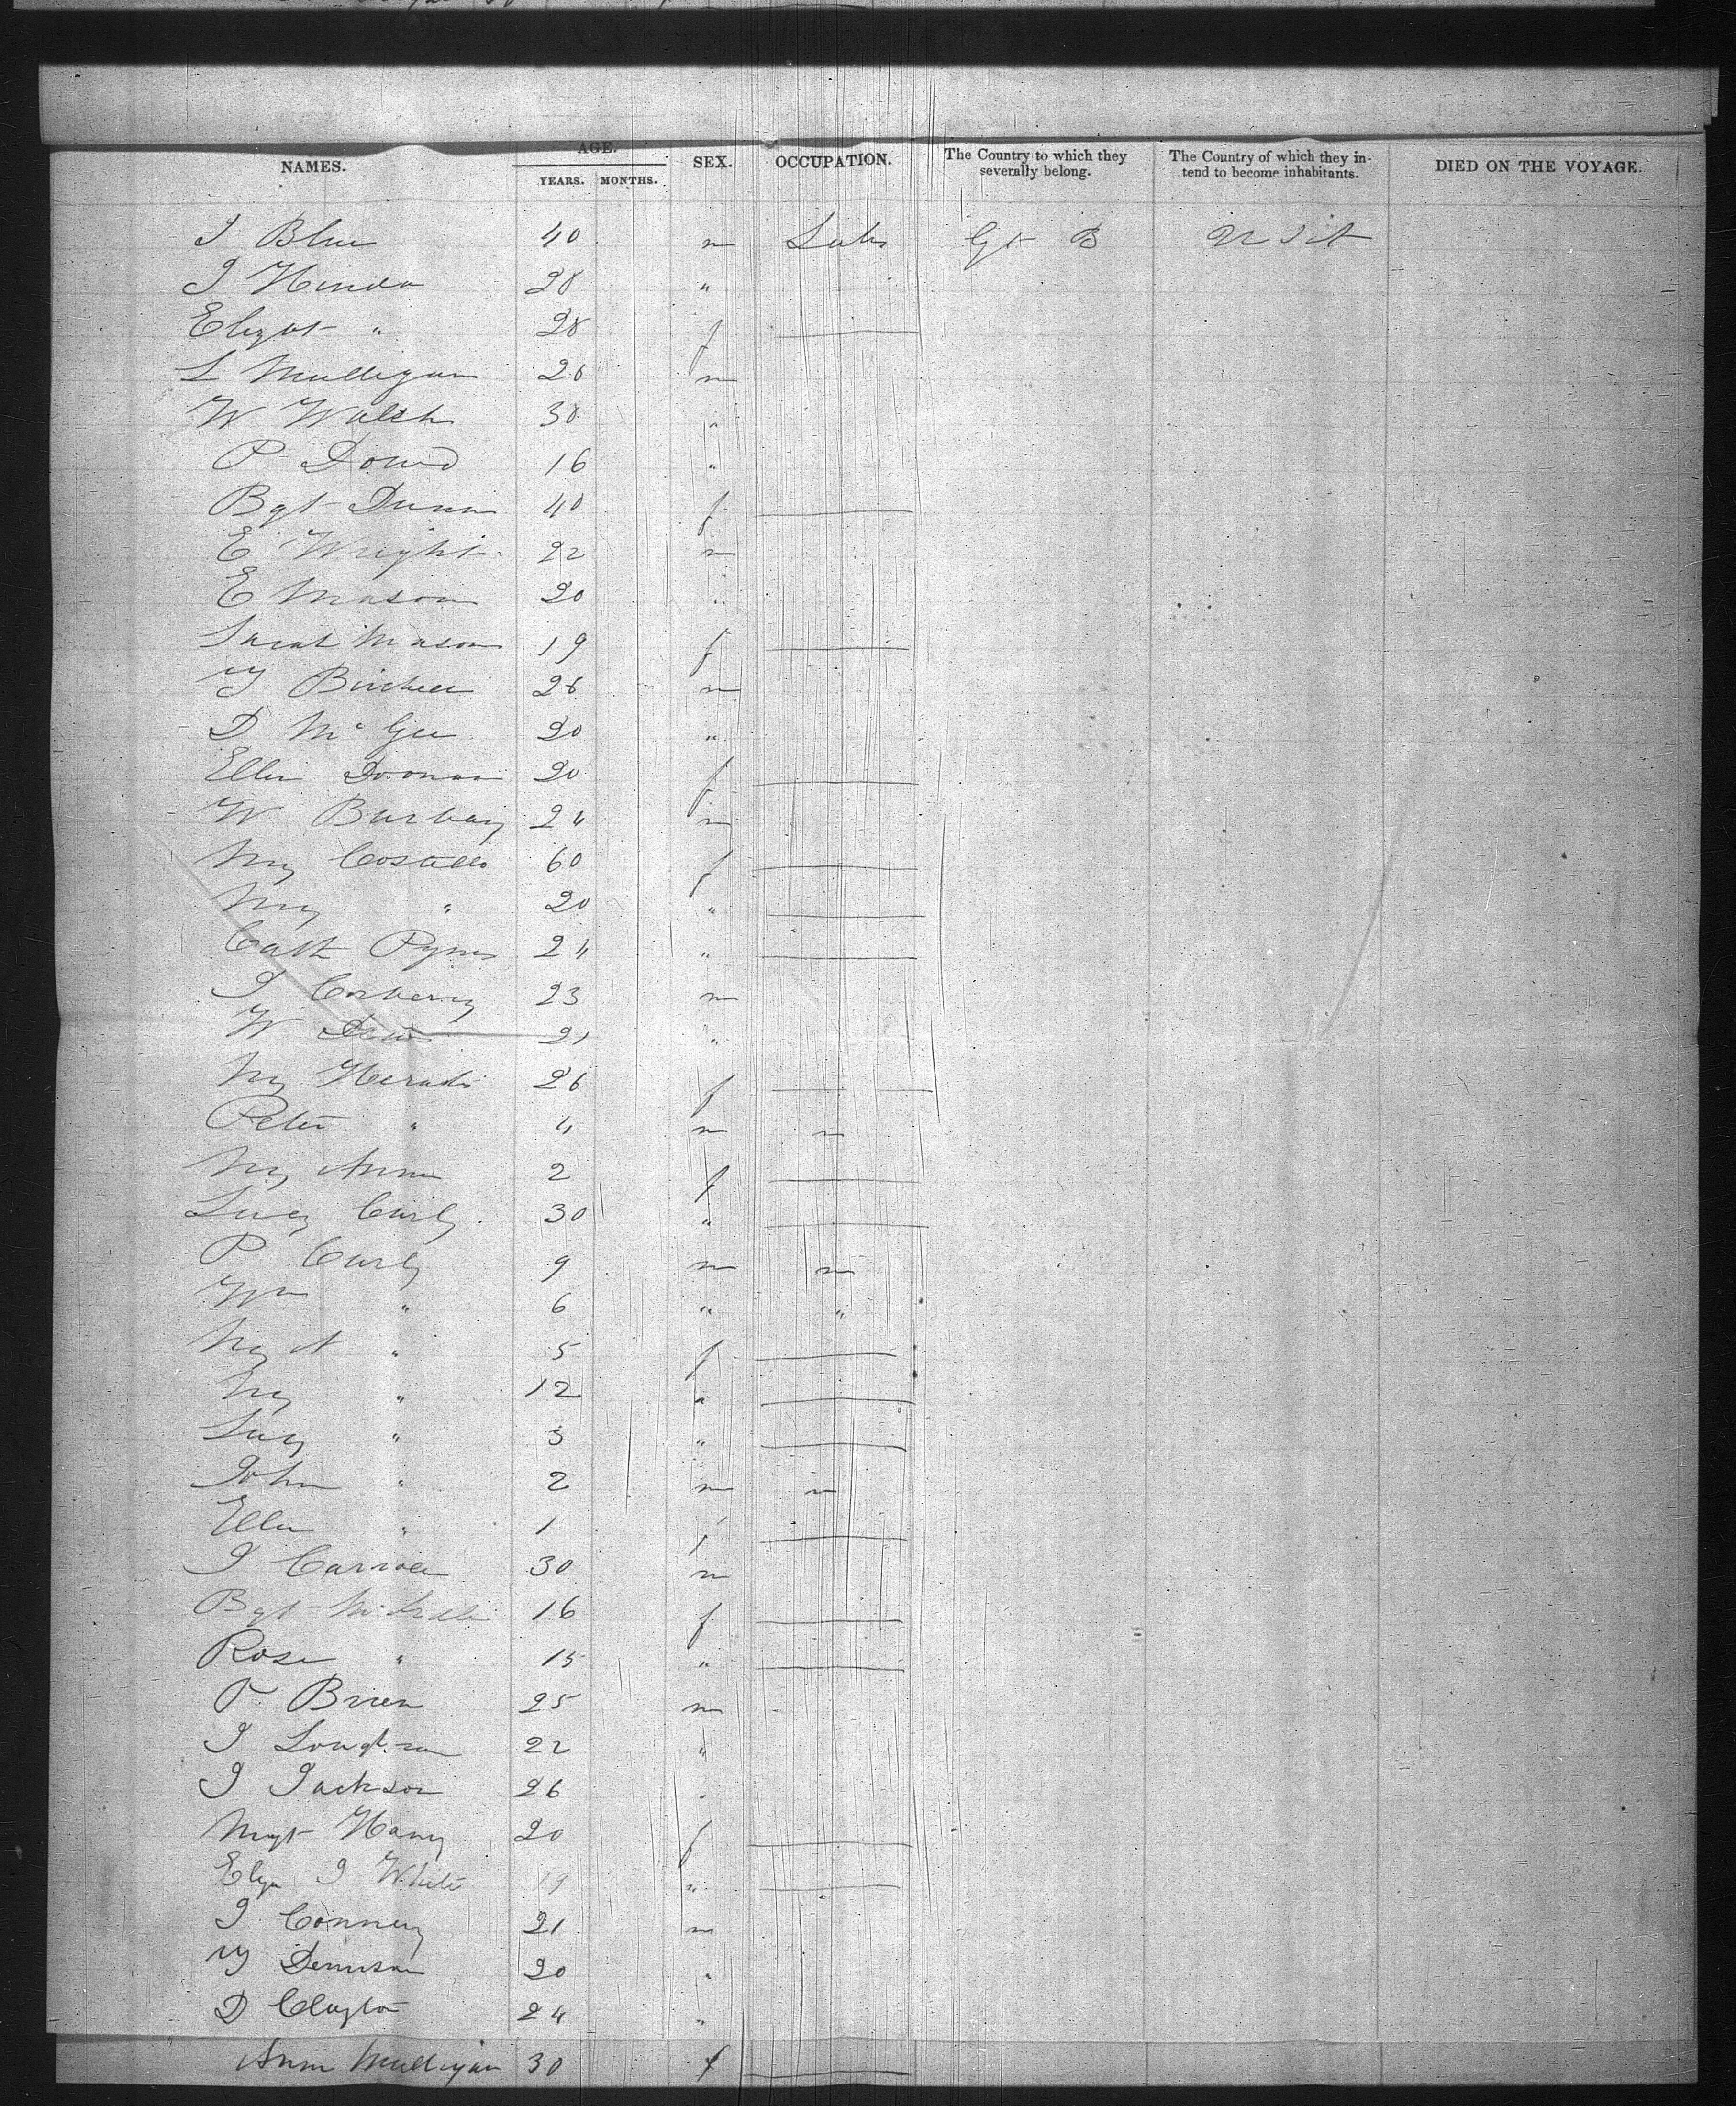 NAMES. AGE. YEARS. MONTHS. SEX. OCCUPATION. The Country to which they severally belong. The Country of which they intend to become inhabitants. DIED ON THE VOYAGE.
J Blue 40 m Labr Gt B U St
J 28 "
Elizbt " 28 f
L Mulligan 28 m
W Walsh 38 "
P Dowd 16 "
Bgt Dunn 40 f
E Wright 22 m
E Mason 20 "
Sarah Mason 19 f
26 m
D McGee 20 "
Ellen 20 f
W 24 m
My Costello 60 f
My " 20 "
Cath Pynes 24 "
J Carberry 23 m
W 21 "
My 26 f
Peter " 4 m m
My Ann 2 f
Lucy Curly 30 "
P Curly 9 m m
Wm " 6 " "
My A " 5 f
My " 12 "
Lucy " 3 "
John " 2 m m
Ellen " 1 f
J Carroll 30 m
Bgt 16 f
Rose " 15 "
P Brien 25 m
J Loughran 22 "
J Jackson 26 "
Mgt 20 f
Eliza J White 19 "
J 21 m
Dennison 20 "
D Clayton 24 "
Ann Mulligan 30 f